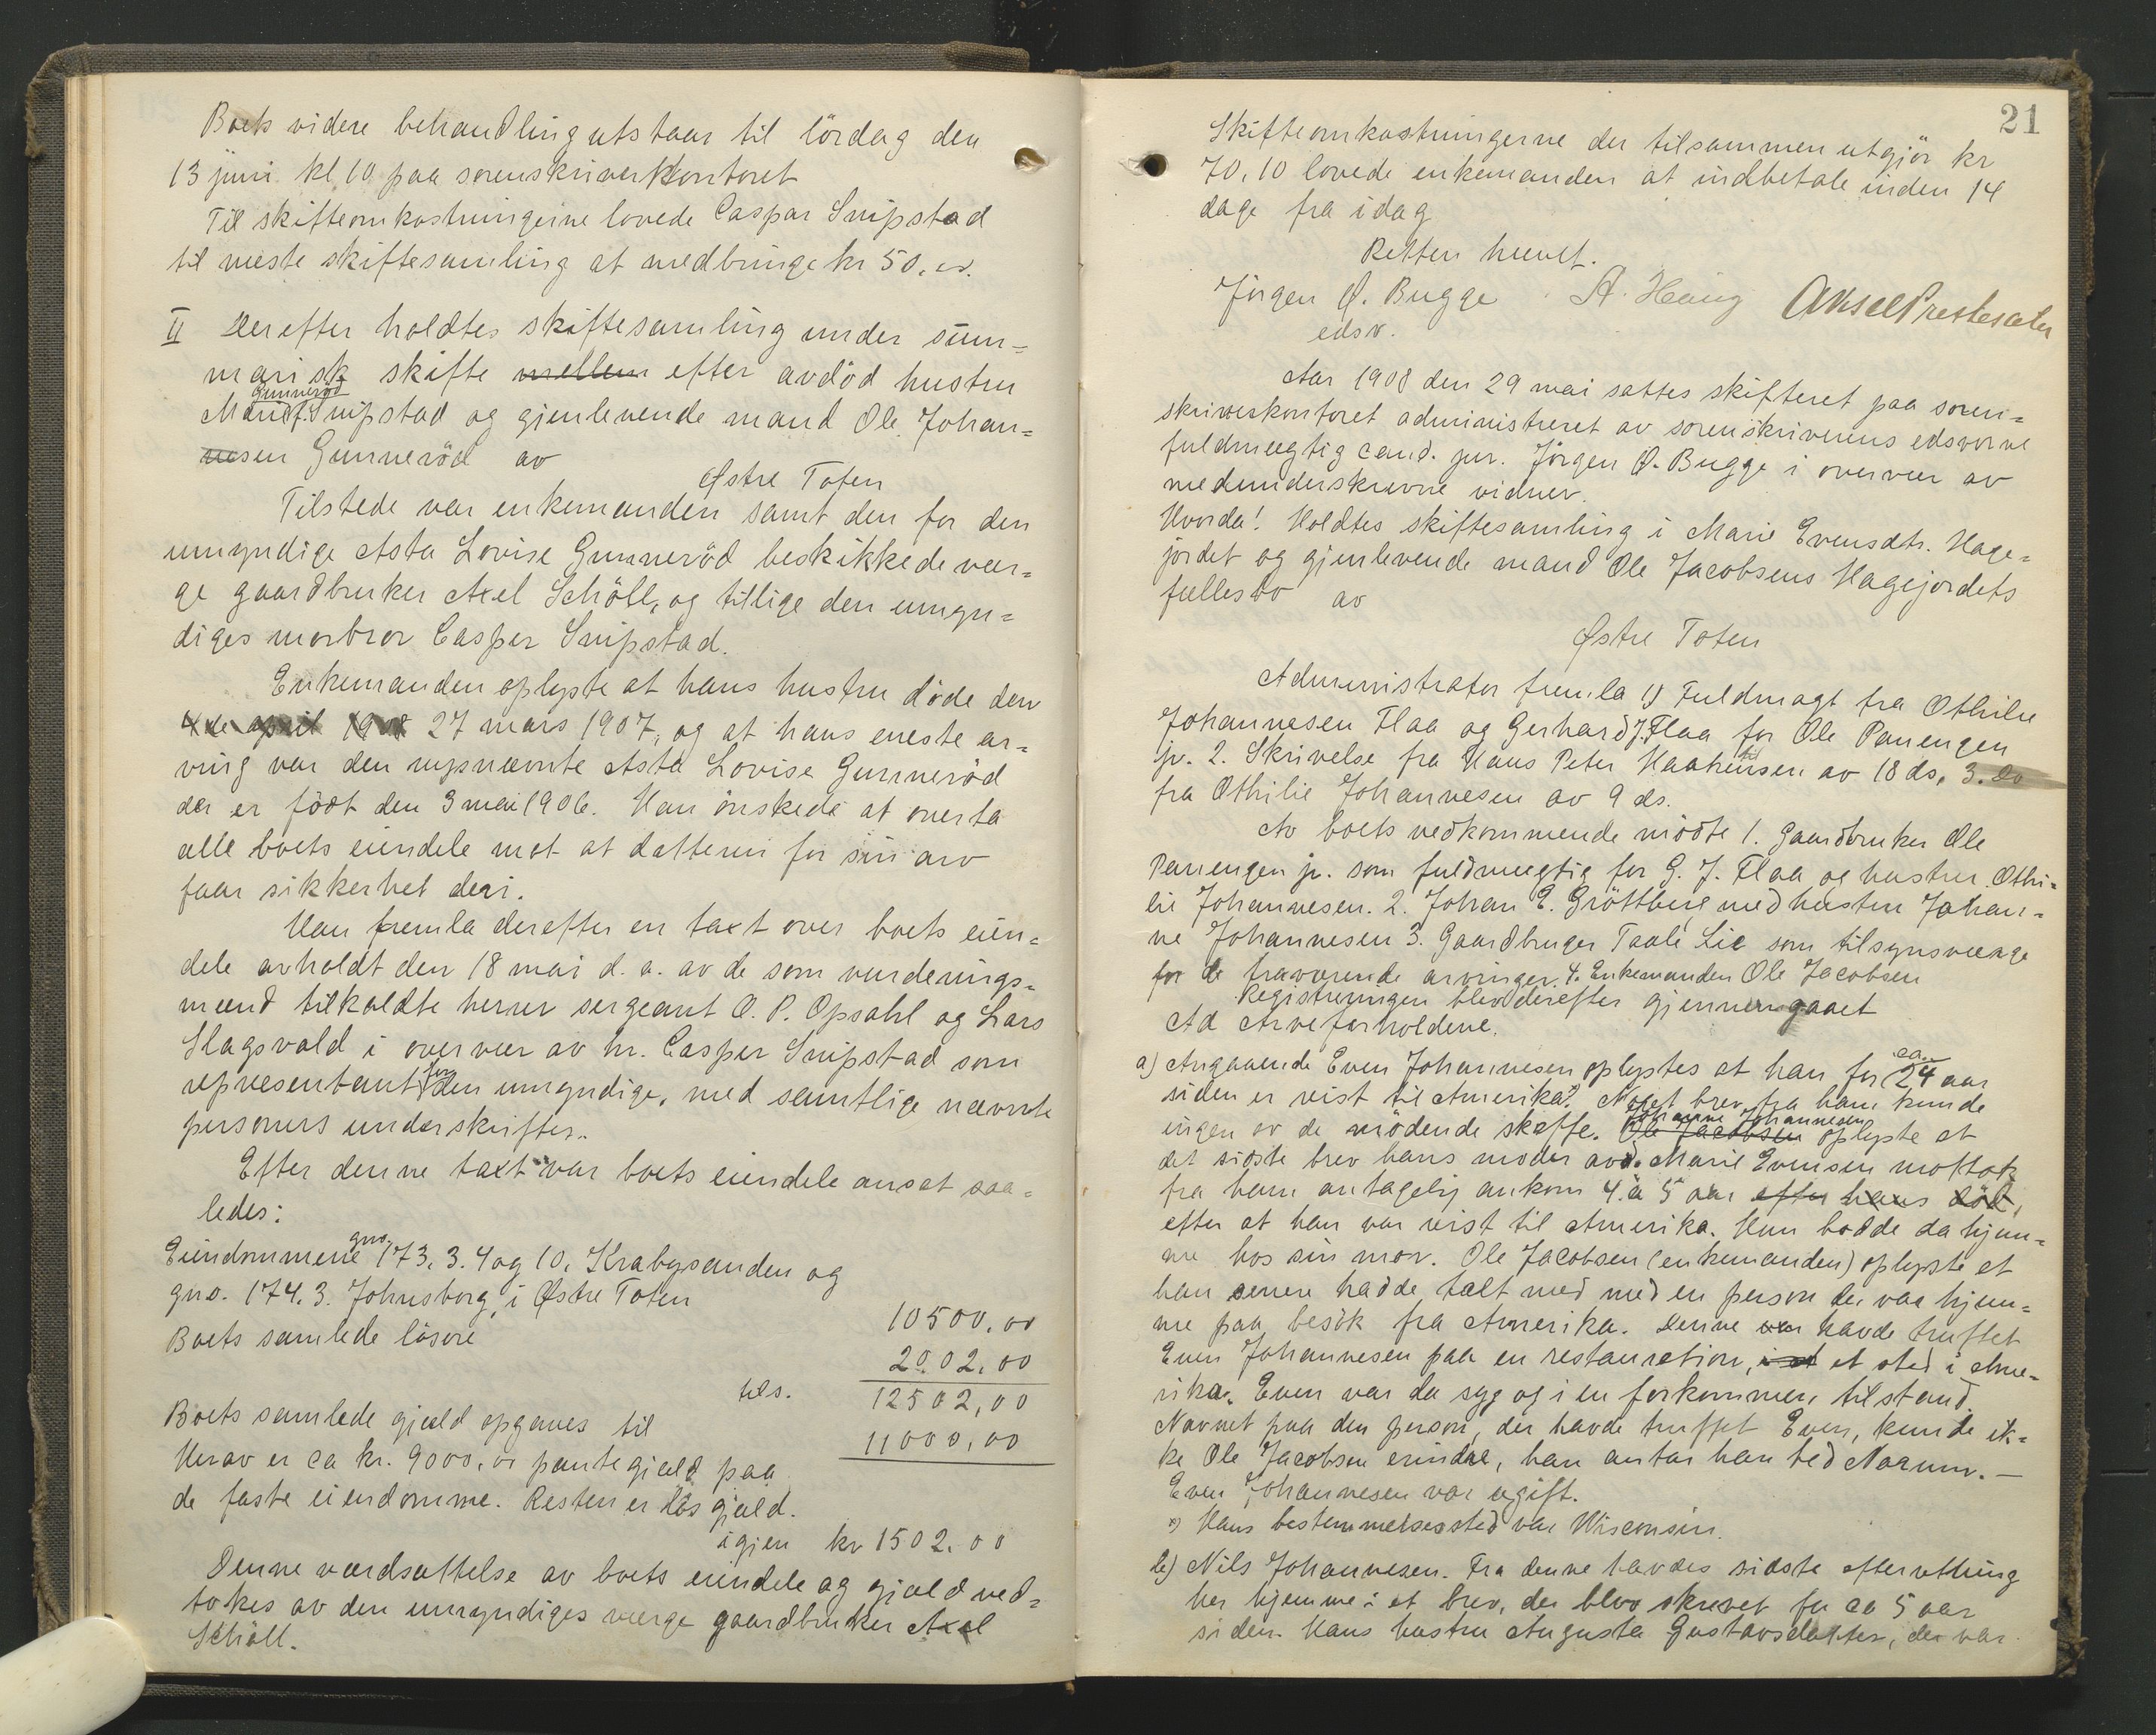 Boets videre behandling utstaar til lördag den
13 juni kl. 10 paa sorenskriverkontoret
Til skifteomkostningerne lovede Caspar Snipstad
til næste skiftesamling at medbringe kr 50.00.
II Derefter holdtes skiftesamling under sum-
marisk skifte mellem efter avdöd hustru
Gunneröd
Snipstad og gjenlevende mand Ole Johan-
nesen Gunneröd av
Østre Toten
Tilstede var enkemanden samt den for den
umyndige Asta Lovise Gunneröd beskikkede vær-
ge gaardbruker Axel Schöll, og tillige den umyn-
diges morbror Casper Snipstad.
Enkemanden oplyste at hans hustru döde den
4de april 1908 27 mars 1907, og at hans eneste ar-
ving var den nysnævnte Asta Lovise Gunneröd
der er födt den 3 mai 1906. Han önskede at overta
alle boets eiendele mot at datteren for sin arv
faar sikkerhet deri.
Han fremla derefter en taxt over boets eien-
dele avholdt den 18 mai d. a. av de som vurderings-
mænd tilkaldte herrer sergeant O. P. Opsahl og Lars
Slagsvold i overvær av hr. Casper Snipstad som
representant for den umyndige, med samtlige nævnte
personers underskrifter.
Efter denne taxt var boets eiendele ansat saa-
ledes:
Eiendommene gno. 173, 3. 4 og 10, Krabysanden og
gno. 174. 3. Johnsborg i Østre Toten
10500,00
Boets samlede lösöre
2002,00
tils. 12502,00
Boets samlede gjæld opgaves til
11000,00
Herav er ca kr. 9000,00 pantegjæld paa
de faste eiendomme. Resten er lös gjæld.
igjen kr 1502.00
Denne værdsættelse av boets eiendele og gjæld ved-
tokes av den umyndiges værge gaardbruker Axel
Schöll.
21
Skifteomkostningerne der tilsammen utgjör kr
70,10 lovede enkemanden at indbetale inden 14
dage fra idag
Retten hævet.
Jörgen Ø. Bugge A. Haug Aksel Prestesæter
edsv.
Aar 1908 den 29 mai sattes skifteret paa soren-
skriverkontoret administreret av sorenskriverens edsvorne
fuldmægtig cand. jur. Jörgen Ø. Bugge i overvær av
medunderskrevne vidner.
Hvorda! Holdtes skiftesamling i Marie Evensdtr. Hage-
jordet og gjenlevende mand Ole Jacobsens Hagejordets
fællesbo av
Østre Toten
Administrator fremla 1) Fuldmagt fra Othilie
Johannesen Flaa og Gerhard J. Flaa for Ole Panengen
jr. 2. Skrivelse fra Hans Peter Haakensen av 18 ds, 3. Do
fra Othilie Johannesen av 9 ds.
Av boets vedkommende mödte 1. Gaardbruker Ole
Panengen jr. som fuldmægtig for G. J. Flaa og hustru Othi-
lie Johannesen. 2. Johan E. Gröttberg med hustru Johan-
ne Johannesen 3. Gaardbruger Taale Lie som tilsynsværge
for de fraværende arvinger. 4. Enkemanden Ole Jacobsen
Registreringen blev derefter gjennemgaaet
Ad Arveforholdene.
a) Angaaende Even Johannesen oplystes at han for ca. 24 aar
siden er reist til Amerika. x) Noget brev fra ham kunde
Johanne Johannesen
ingen av de mödende skaffe. Ole Jacobsen oplyste at
det sidste brev hans moder avd. Marie Evensen mottok
fra ham antagelig ankom 4 à 5 aar efter hans död,
efter at han var reist til Amerika. Hun bodde da hjem-
me hos sin mor. Ole Jacobsen (enkemanden) oplyste at
han senere hadde talt med med en person der var hjem-
me paa besök fra Amerika. Denne havde truffet
Even Johannesen paa en restauration, i et et sted i Ame-
rika. Even var da syg og i en forkommen tilstand.
Navnet paa den person, der havde truffet Even, kunde ik-
ke Ole Jacobsen erindre, han antar han hed Narum. -
Even Johannesen var ugift.
x) Hans bestemmelsessted var Wisconsin.
b) Nils Johannesen. Fra denne havdes sidste efterretning
her hjemme i et brev, der blev skrevet for ca 5 aar
siden. Hans hustru Augusta Gustavsdatter, der var